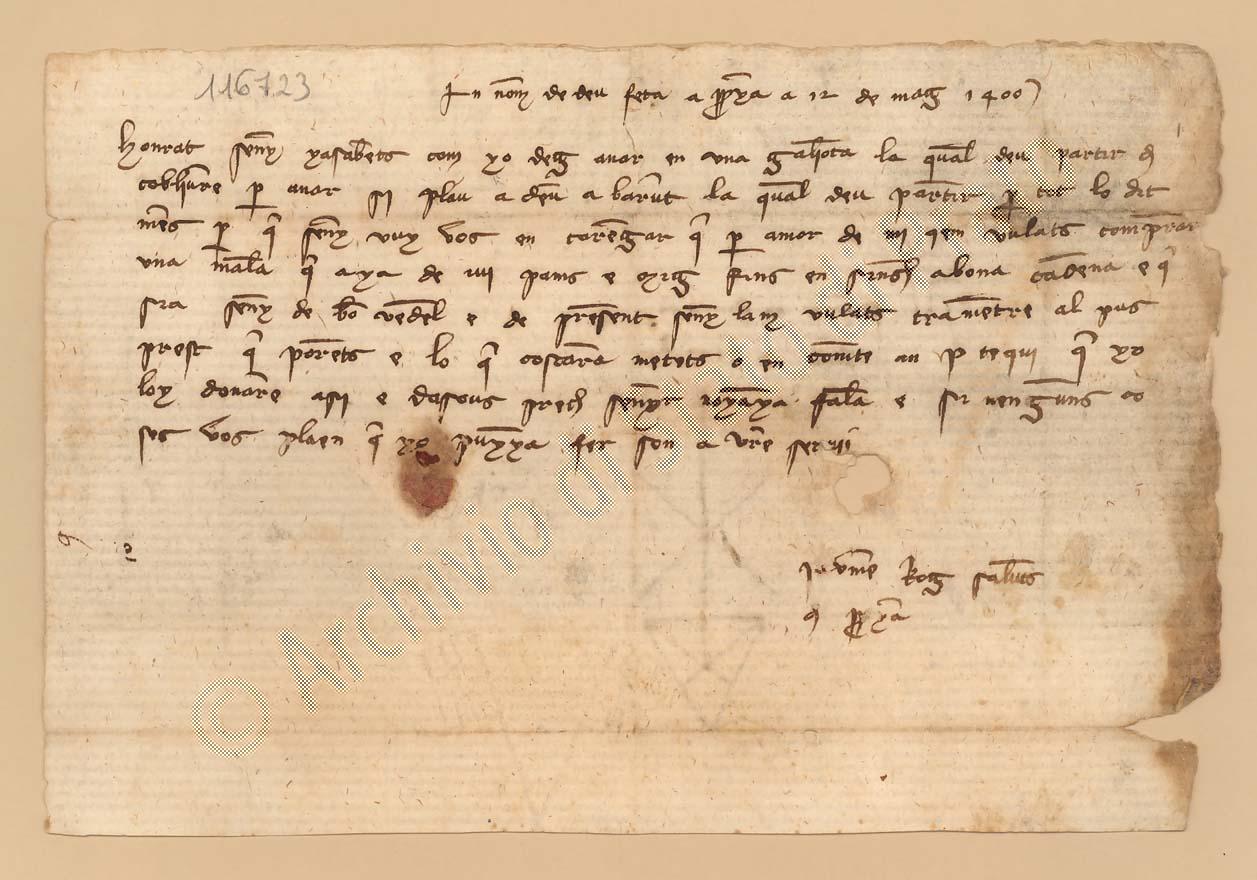 116723
In nom de deu feta a a 12 de mag 1400
Honrat seny ya sabets com yo deg anar en una galiota la qual deu partir de
cobliure per anar si plau a deu a barut la qual deu partir per tot lo dit
mes per que seny vuy vos en carregar que per amor de mi quem vulats comprar
una mala que aya de iiii pams e fins en a bona cadena e que
sia seny de bo vedel e de present seny lam vulats trametre al pus
prest que porets e lo que costara metets o en comte an que yo
loy donare asi e daso us prech senyer noy aya fala e si nenguns co
ses vos plaen que yo puyya fer son a vre servii
Jaume Rog saluts
© Archivio di Stato di Prato